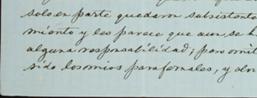 solo en parte quedarn subsistente
miento y les parece que aun se h
alguna responsabilidad; para mit
sido los mios parafernales, y don